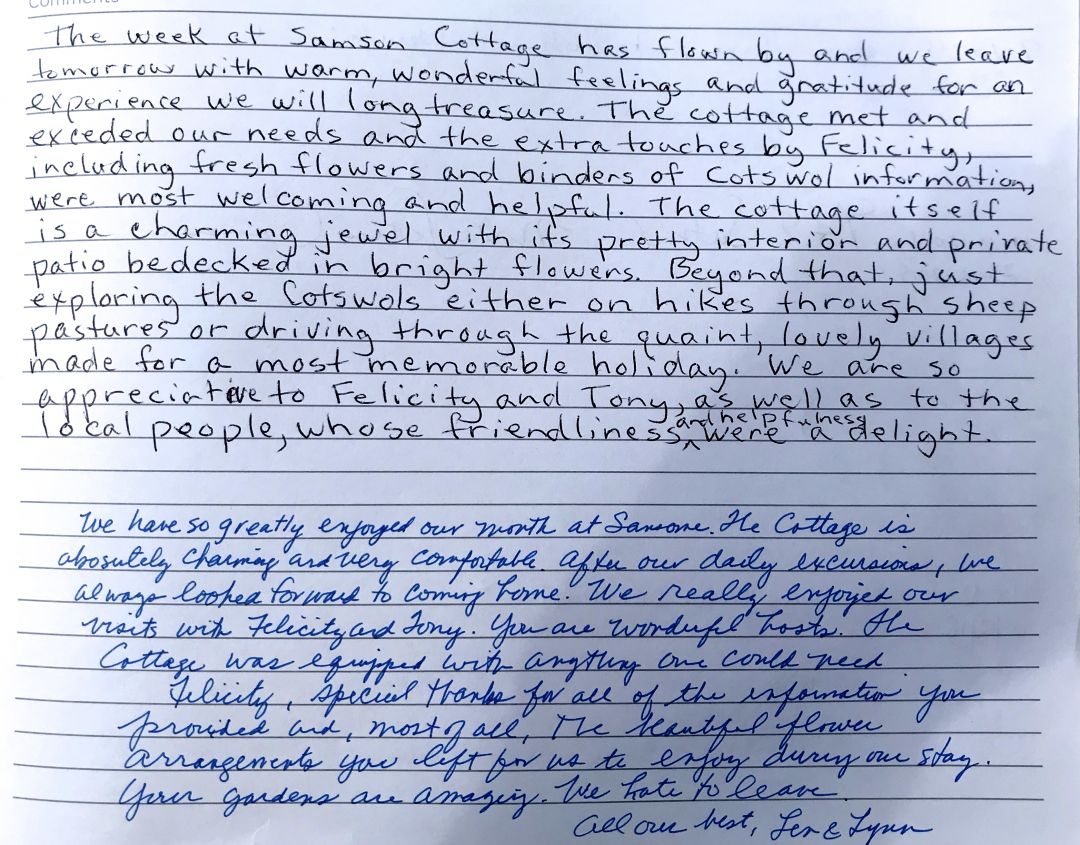 Comments
The week at Samson Cottage has flown by and we leave
tomorrow with warm, wonderful feelings and gratitude for an
experience we will long treasure. The cottage met and
exceded our needs and the extra touches by Felicity,
including fresh flowers and binders of Cotswol information,
were most welcoming and helpful. The cottage itself
is a charming jewel with its pretty interior and private
patio bedecked in bright flowers. Beyond that, just
exploring the Cotswols either on hikes through sheep
pastures or driving through the quaint, lovely villages
made for a most memorable holiday. We are so
appreciative to Felicity and Tony, as well as to the
local people, whose friendliness and helpfulness were a delight.
We have so greatly enjoyed our month at Sansome. The Cottage is
abosutely charming and very comfortable. After our daily excursions, we
always looked forward to coming home. We really enjoyed our
visits with Felicity and Tony. You are wonderful hosts. The
Cottage was equipped with anything one could need
Felicity, special thanks for all of the information you
provided and, most of all, the beautiful flower
arrangements you left for us to enjoy during our stay.
Your gardens are amazing. We hate to leave.
All our best, & Lynn